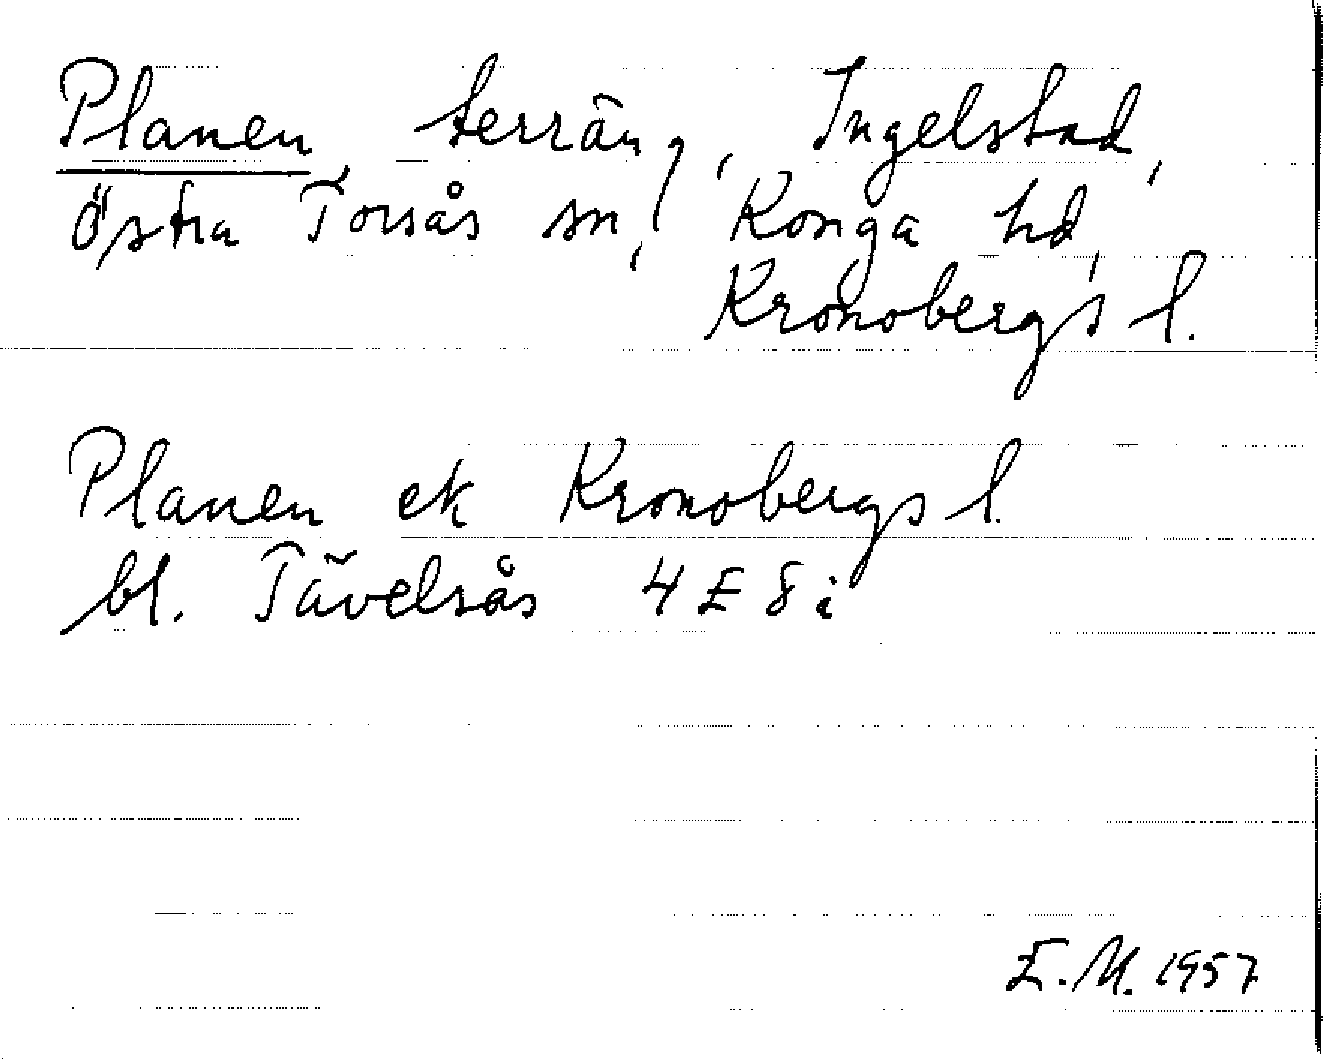 Planen, terräng, Ingelstad,
Östra Torsås sn, Konga hd,
Kronobergs l.
Planen ek Kronobergs l.
bl. Tävelsås 4 E 8 i
E.M. 1957